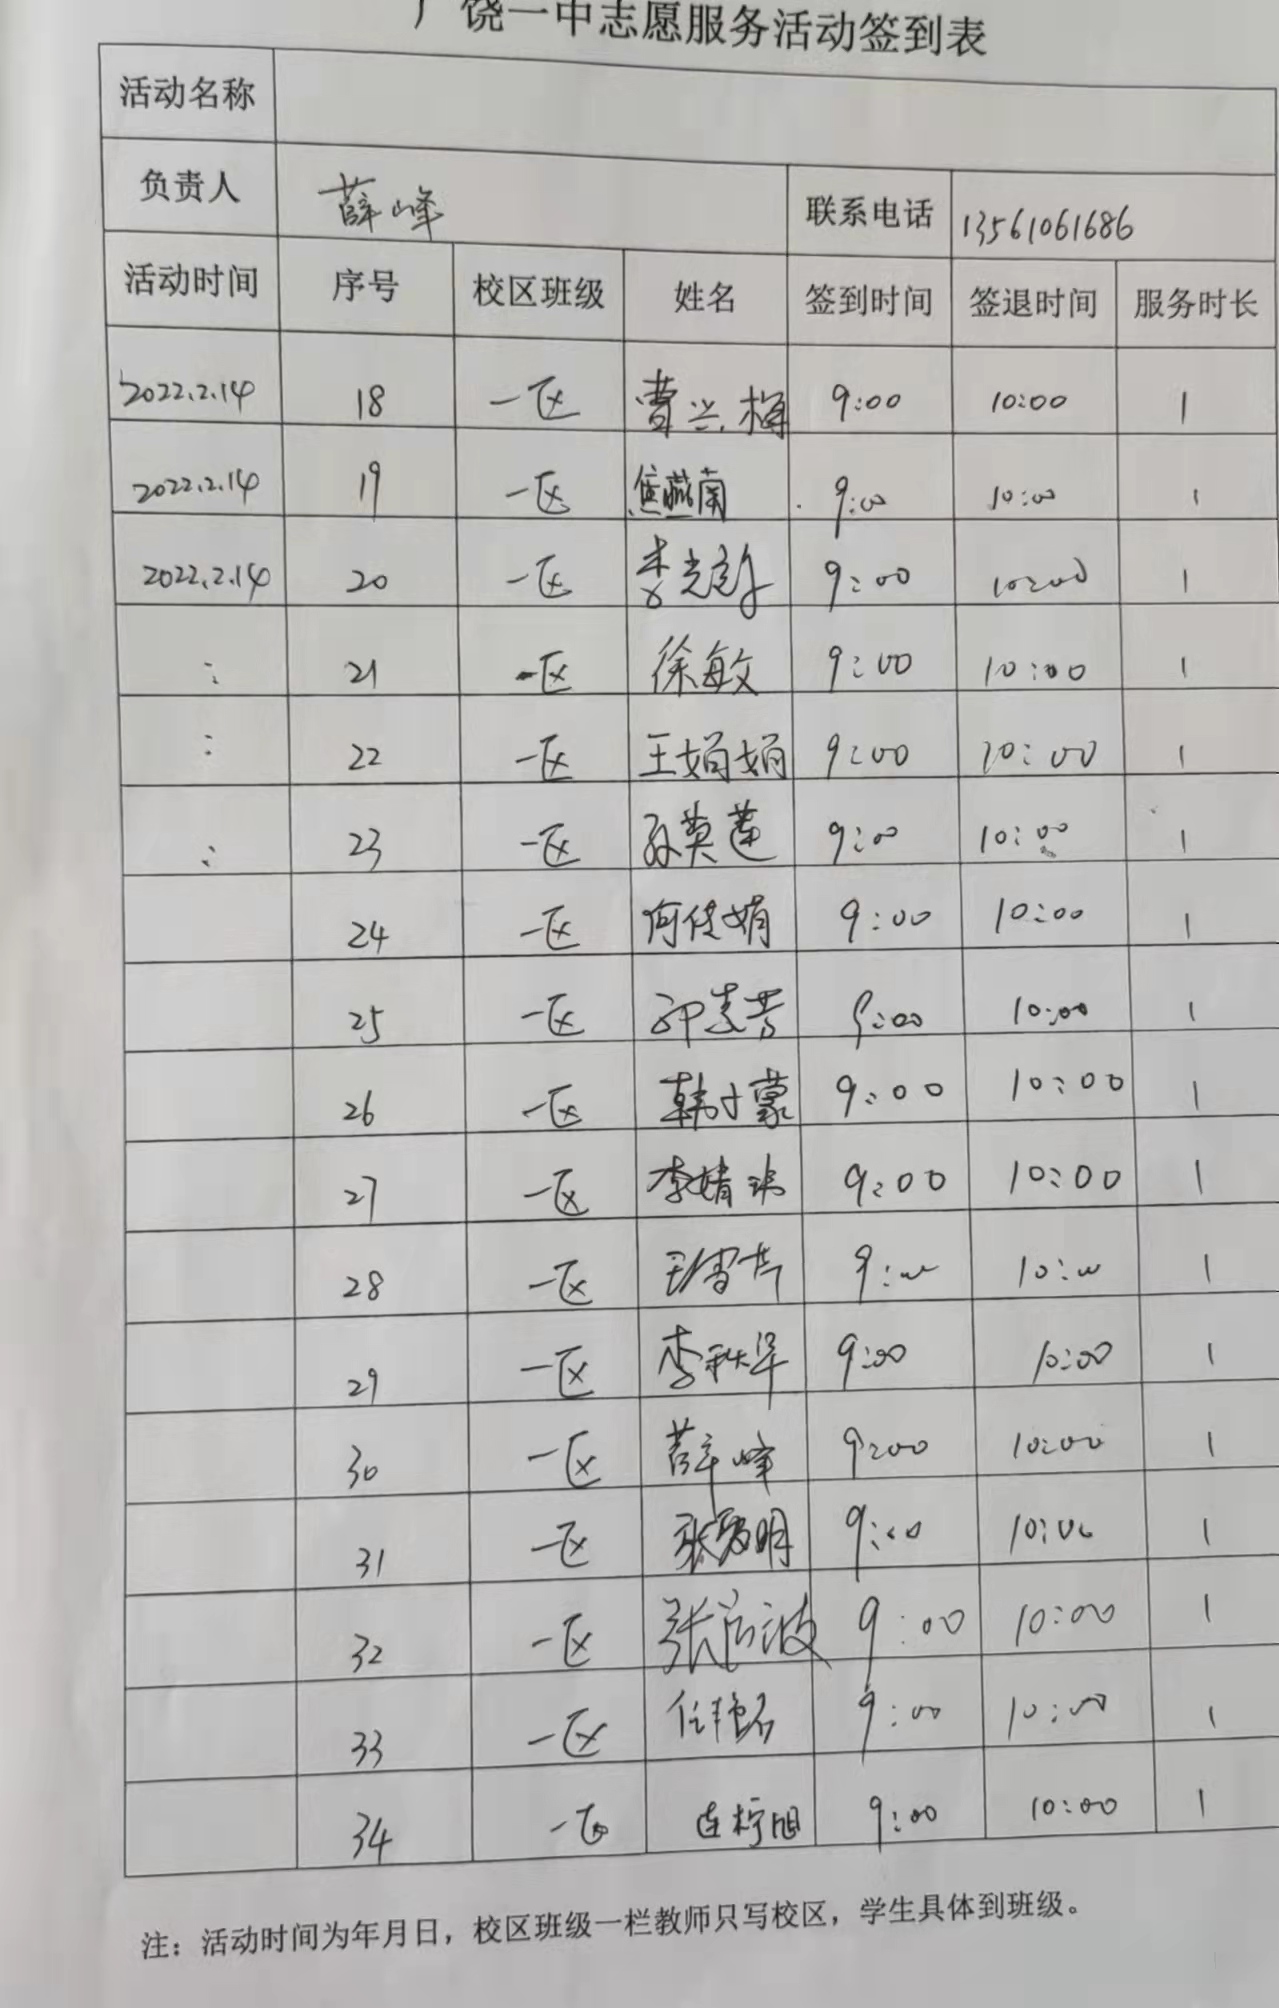 广饶一中志愿服务活动签到表
活动名称
负责人 薛峰 联系电话 13561061686
活动时间 序号 校区班级 姓名 签到时间 签退时间 服务时长
2022.2.14 18 一区 曹兴梅 9:00 10:00 1
2022.2.14 19 一区 焦燕南 9:00 10:00 1
2022.2.14 20 一区 李 9:00 10:00 1
: 21 一区 徐敏 9:00 10:00 1
: 22 一区 王娟娟 9:00 10:00 1
: 23 一区 孙英莲 9:00 10:00 1
24 一区 何佳娟 9:00 10:00 1
25 一区 9:00 10:00 1
26 一区 韩小蒙 9:00 10:00 1
27 一区 李婧 9:00 10:00 1
28 一区 9:00 10:00 1
29 一区 李秋华 9:00 10:00 1
30 一区 薛峰 9:00 10:00 1
31 一区 张 明 9:00 10:00 1
32 一区 张 波 9:00 10:00 1
33 一区 任 9:00 10:00 1
34 一区 连柠旭 9:00 10:00 1
注：活动时间为年月日，校区班级一栏教师只写校区，学生具体到班级。